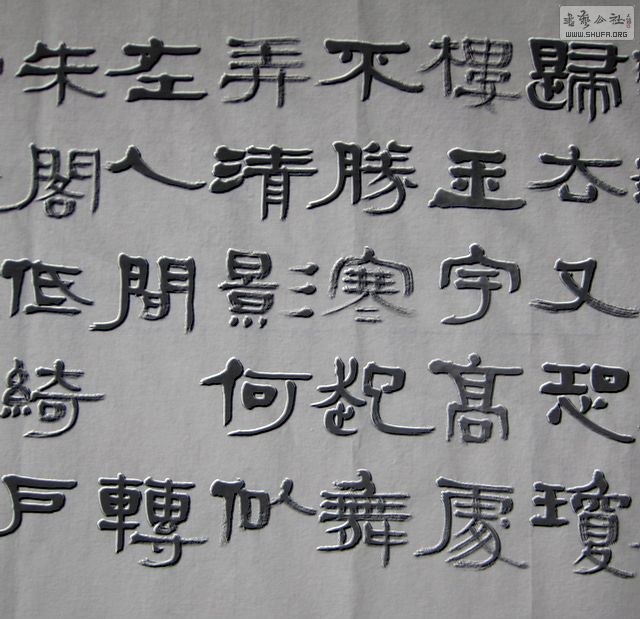 歸去又恐瓊
樓玉宇高處
不勝寒起舞
弄清影何似
在人間 轉
朱閣低綺戶
書藝公社
WWW.SHUFA.ORG